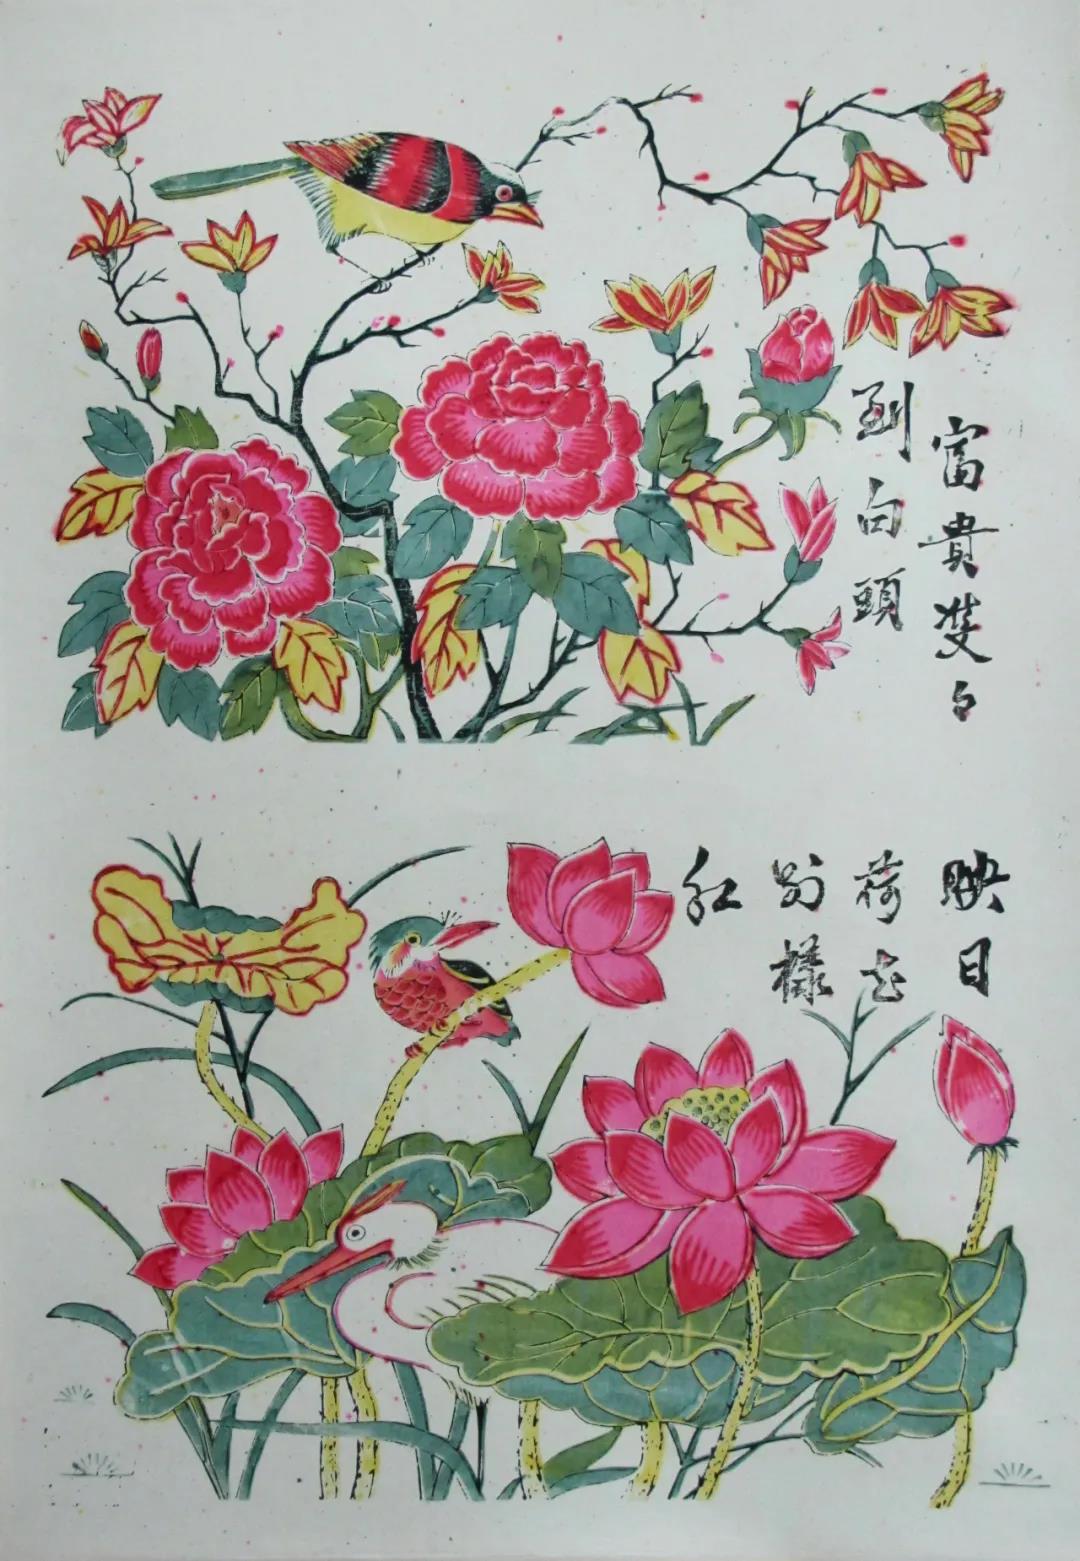 富貴雙々
到白頭
映日
荷花
別樣
紅